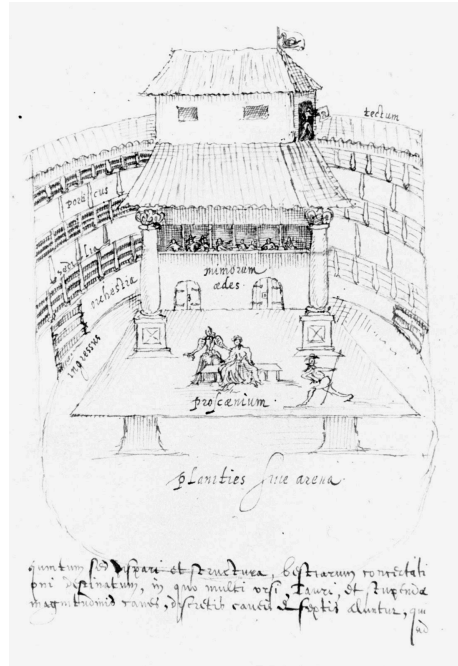 tectum
porticus
sedilia
orchestra
mimorum
ædes
ingressus
proscænium.
planities siue arena
quintum sed dispari et structura, bestiarum concertati
oni destinatum, in quo multi ursi, tauri, et stupendæ
magnitudinis canes, discretis caueis & septis aluntur, qui
ad